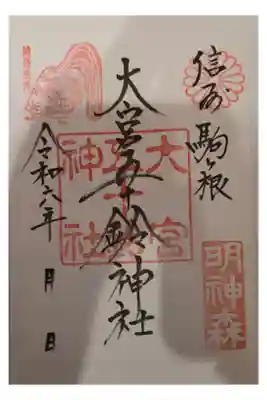 信州 駒ヶ根
明神森
大宮五十鈴神社
大宮
五十鈴
神社
令和六年 月 日